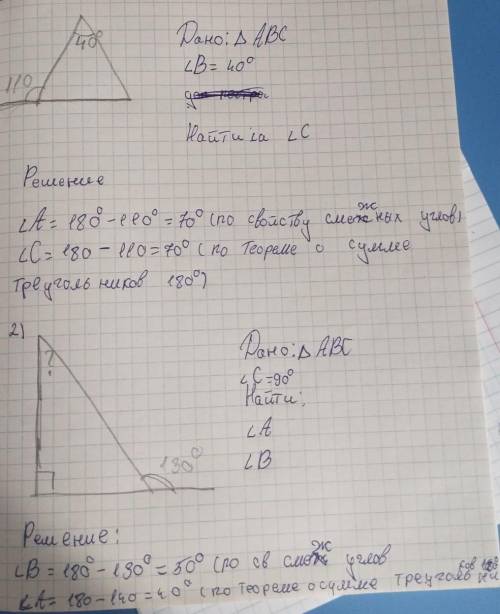 40°
110
Дано: △ ABC
∠B = 40°
Найти: ∠a ∠C
Решение
∠A = 180° - 110° = 70° (по свойству смежных углов)
∠C = 180 - 110 = 70° (по Теореме о сумме
треугольников 180°)
2)
?
130°
Дано: △ ABC
∠C = 90°
Найти:
∠A
∠B
Решение:
∠B = 180° - 130° = 50° (по св смеж углов
∠A = 180 - 140 = 40° (по теореме о сумме треугольни
ков 180